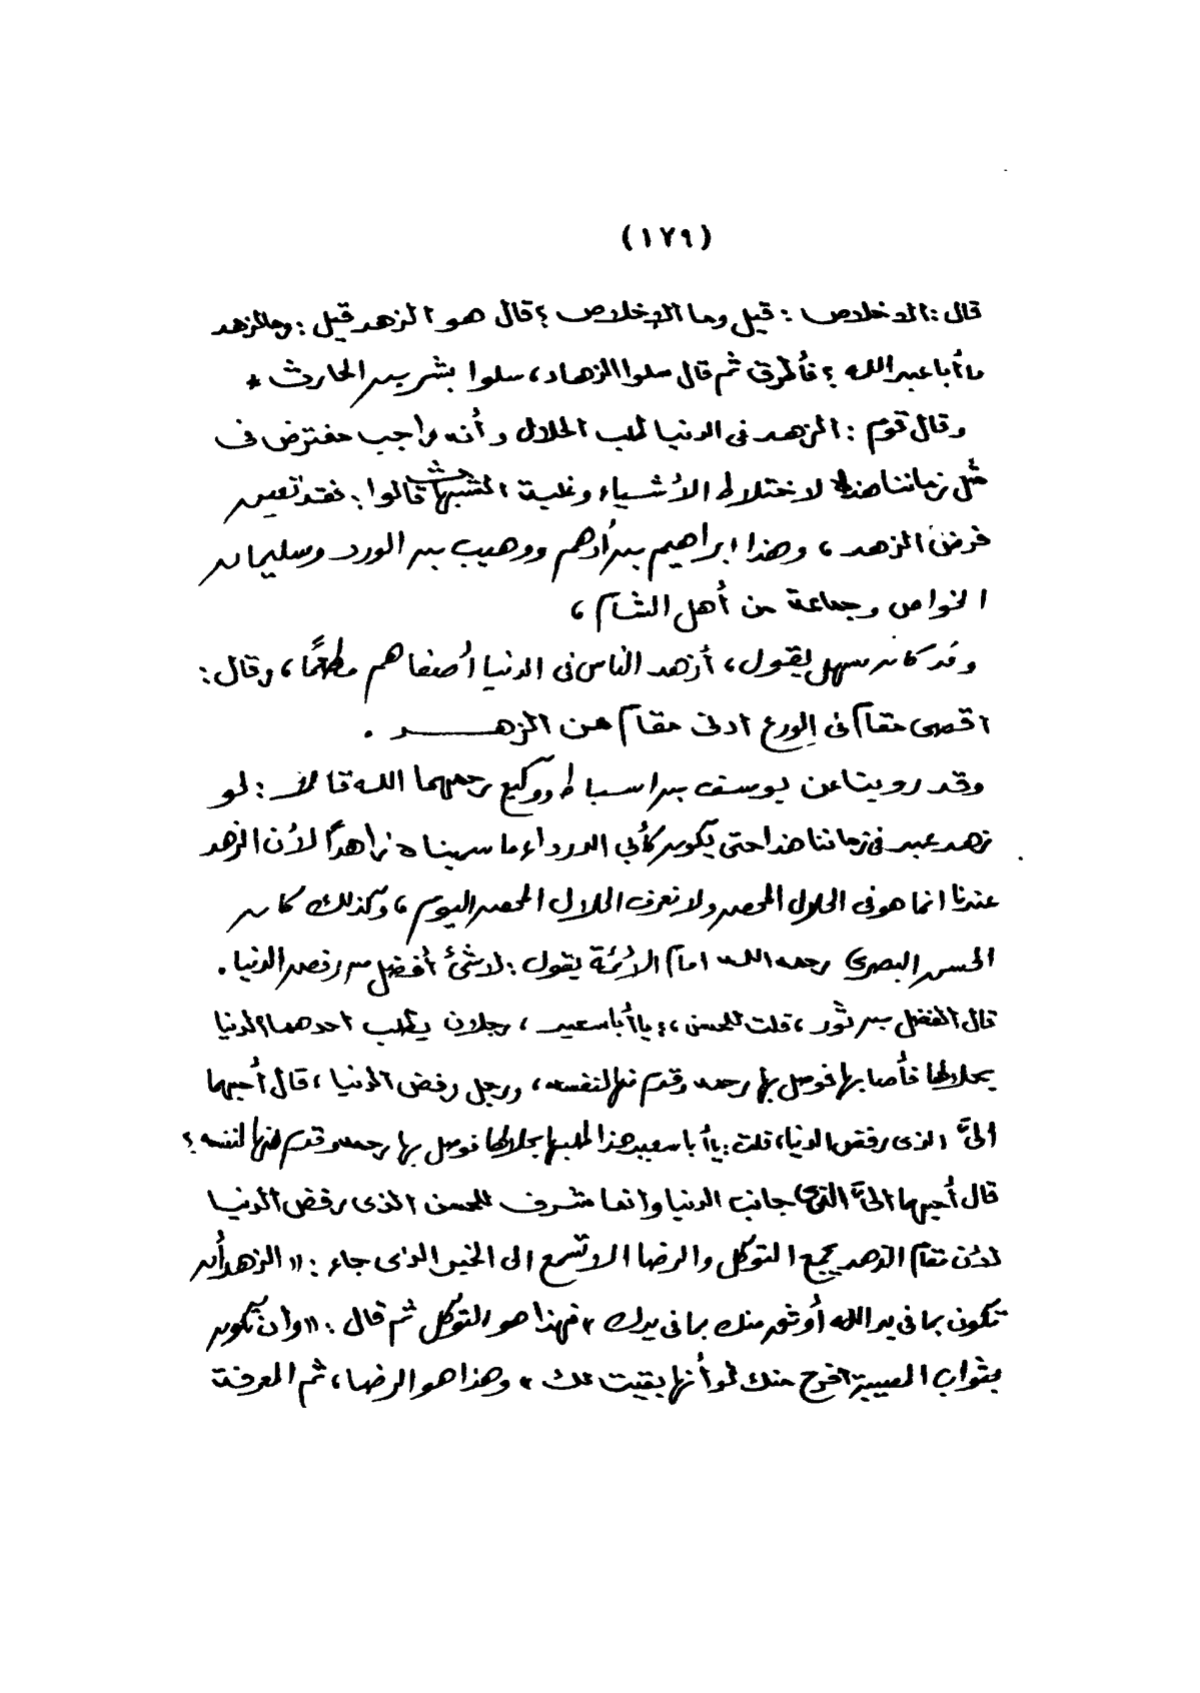 (١٧٩)
قال : الاخلاص : قيل وما الاخلاص ؟ قال هو الزهد قيل : وما الزهد
يا أبا عبد الله ؟ فأطرق ثم قال سلوا الزهاد ، سلوا بشر بن الحارث *
وقال قوم : الزهد فى الدنيا طلب الحلال وأنه واجب مفترض فى
مثل زماننا هذا لاختلاط الأشياء وغلبة الشبهات قالوا : فقد تعين
فرض الزهد ، وهذا ابراهيم بن أدهم ووهيب بن الورد وسليمان
الخواص وجماعة من أهل الشام ،
وقد كان سهل يقول ، أزهد الناس فى الدنيا أصفاهم مطعمًا ، وقال :
اقصى مقام فى الورع ادنى مقام من الزهـــد .
وقد روينا عن يوسف بن اسباط ووكيع رحمهما الله قالا : لو
زهد عبد فى زماننا هذا حتى يكون كأبي الدرداء ما سميناه زاهدًا لأن الزهد
عندنا انما هو فى الحلال المحض ولا نعرف الحلال المحض اليوم ، وكذلك كان
الحسن البصرى رحمه الله امام الأئمة يقول : لا شئ أفضل من رفض الدنيا .
قال الفضل بن ثور ، قلت للحسن ، : يا أبا سعيد ، رجلان يطلب احدهما الدنيا
بحلالها فأصابها فوصل بها رحمه وقدم منها لنفسه ، ورجل رفض الدنيا ، قال أحبهما
الىَّ الذى رفض الدنيا ، قلت : يا أبا سعيد هذا طلبها بحلالها فوصل بها رحمه وقدم منها لنفسه ؟
قال أحبهما الىَّ الذى جانب الدنيا وانما شرف للحسن الذى رفض الدنيا
لأن مقام الزهد يجمع التوكل والرضا الا تسمع الى الخبر الذى جاء : « الزهد أن
تكون بما فى يد الله أوثق منك بما فى يدك » فهذا هو التوكل ثم قال : « وان تكون
بثواب المصيبة افرح منك لو أنها بقيت لك » وهذا هو الرضا ، ثم المعرفة